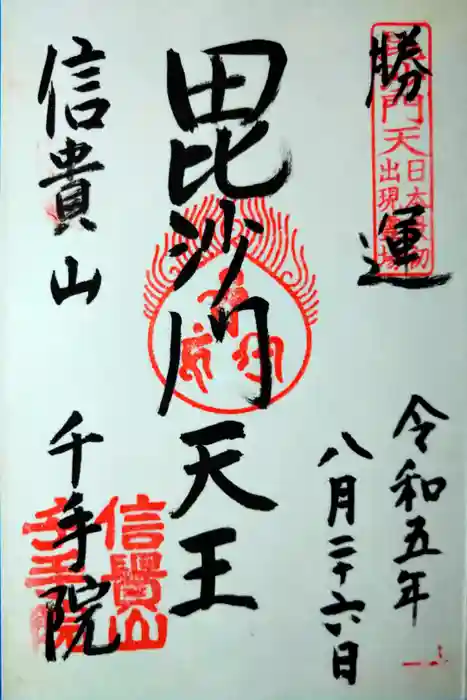 勝運
毘沙門天
日本最初
出現霊場
令和五年
八月二十六日
毘沙門天王
信貴山
千手院
信貴山